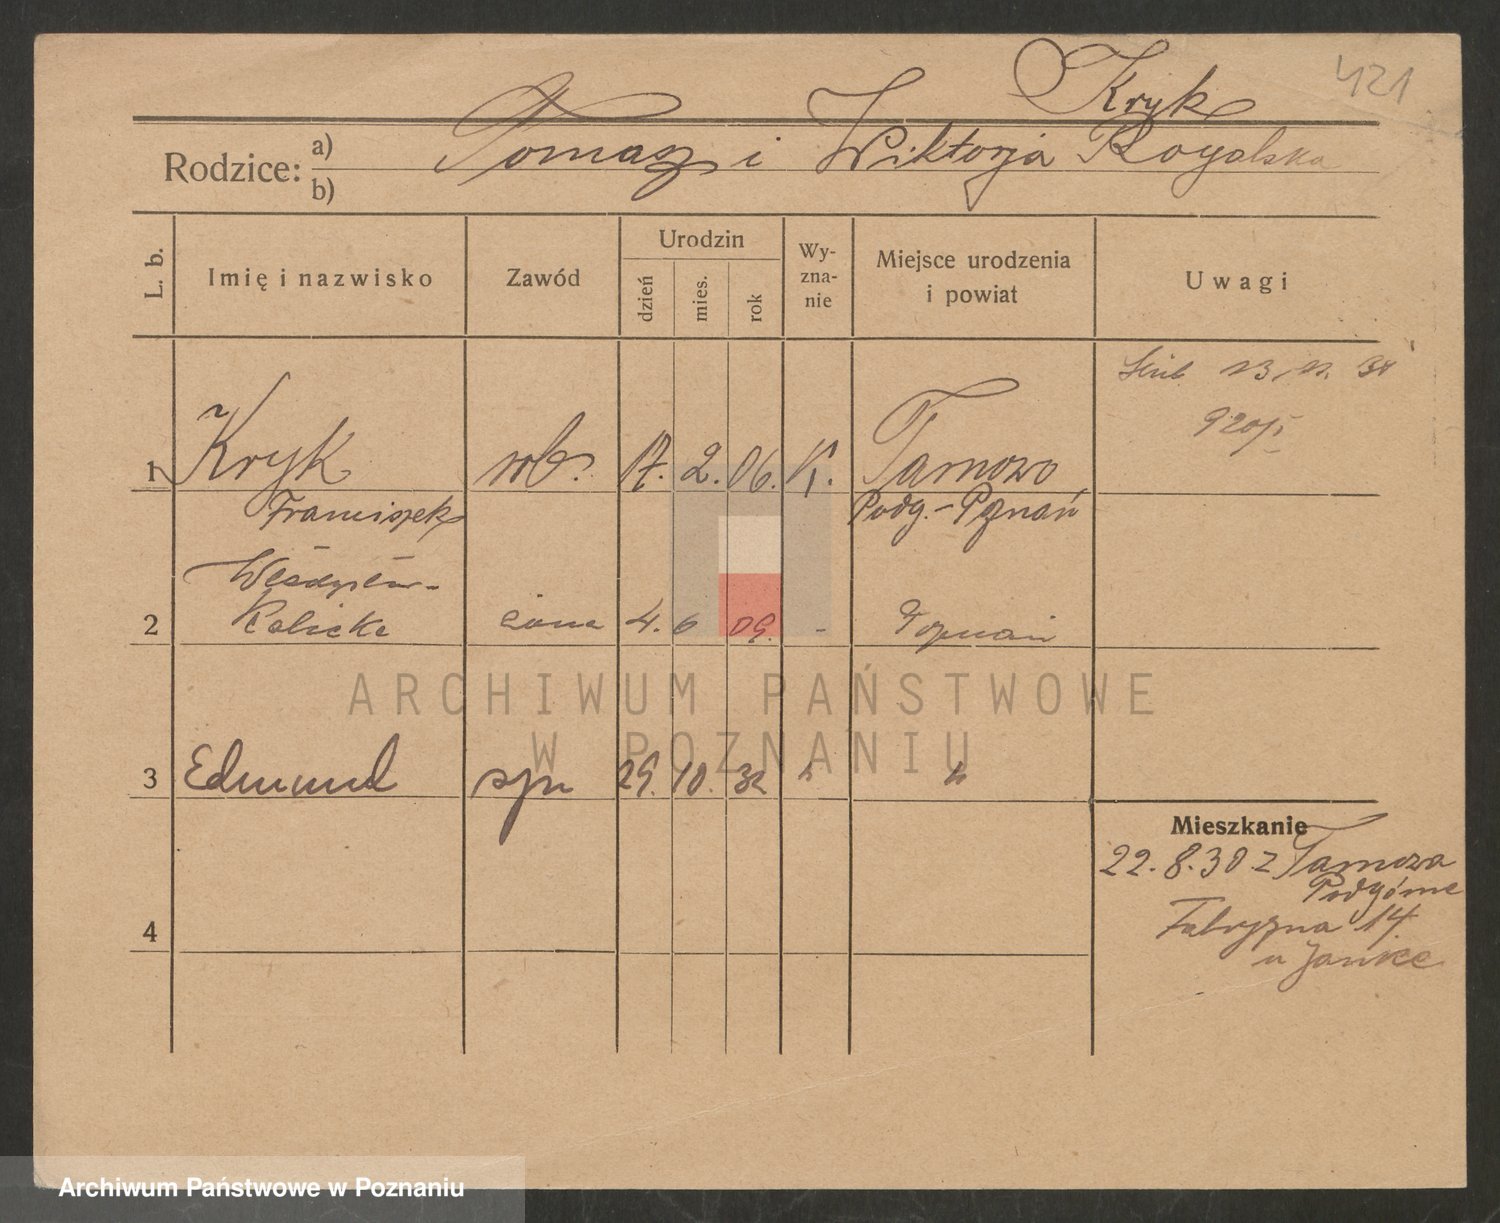 421
Kryk
Rodzice: a) Tomasz i Wiktorja Rogalska
b)
L. b.
Imię i nazwisko
Zawód
Urodzin
dzień
mies.
rok
Wy-
zna-
nie
Miejsce urodzenia
i powiat
Uwagi
1 Kryk rob. 17. 2. 06. K. Tarnowo
Franciszek Podg.-Pznań
ślub 34
Władysława
2 żona 4. 6 09. - Poznań
3 Edmund syn 29. 10. 32 " "
4
Mieszkanie
22.8.30 z Tarnowa
Podgórne
Fabryczna 14
u Janke
ARCHIWUM PAŃSTWOWE
W POZNANIU
Archiwum Państwowe w Poznaniu